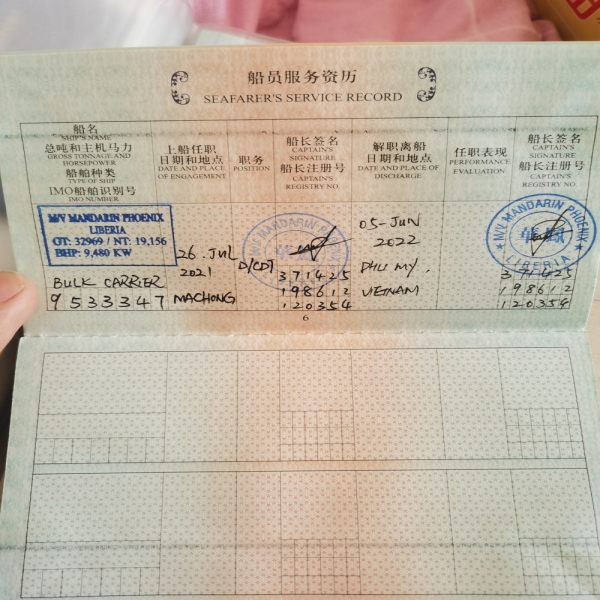 船员服务资历
SEAFARER'S SERVICE RECORD
船名
SHIP'S NAME
总吨和主机马力
GROSS TONNAGE AND
HORSEPOWER
船舶种类
TYPE OF SHIP
IMO船舶识别号
IMO NUMBER
上船任职
日期和地点
DATE AND PLACE
OF ENGAGEMENT
职务
POSITION
船长签名
CAPTAIN'S
SIGNATURE
船长注册号
CAPTAIN'S
REGISTRY NO.
解职离船
日期和地点
DATE AND PLACE OF
DISCHARGE
任职表现
PERFORMANCE
EVALUATION
船长签名
CAPTAIN'S
SIGNATURE
船长注册号
CAPTAIN'S
REGISTRY NO.
M/V MANDARIN PHOENIX
LIBERIA
GT: 32969 / NT: 19,156
BHP: 9,480 KW
BULK CARRIER
9533347
26. JUL
2021
MACHONG
D/CDT
M/V MANDARIN PHOENIX
371425
198612
120354
05-JUN
2022
PHU MY
VIETNAM
M/V MANDARIN PHOENIX
LIBERIA
371425
198612
120354
6